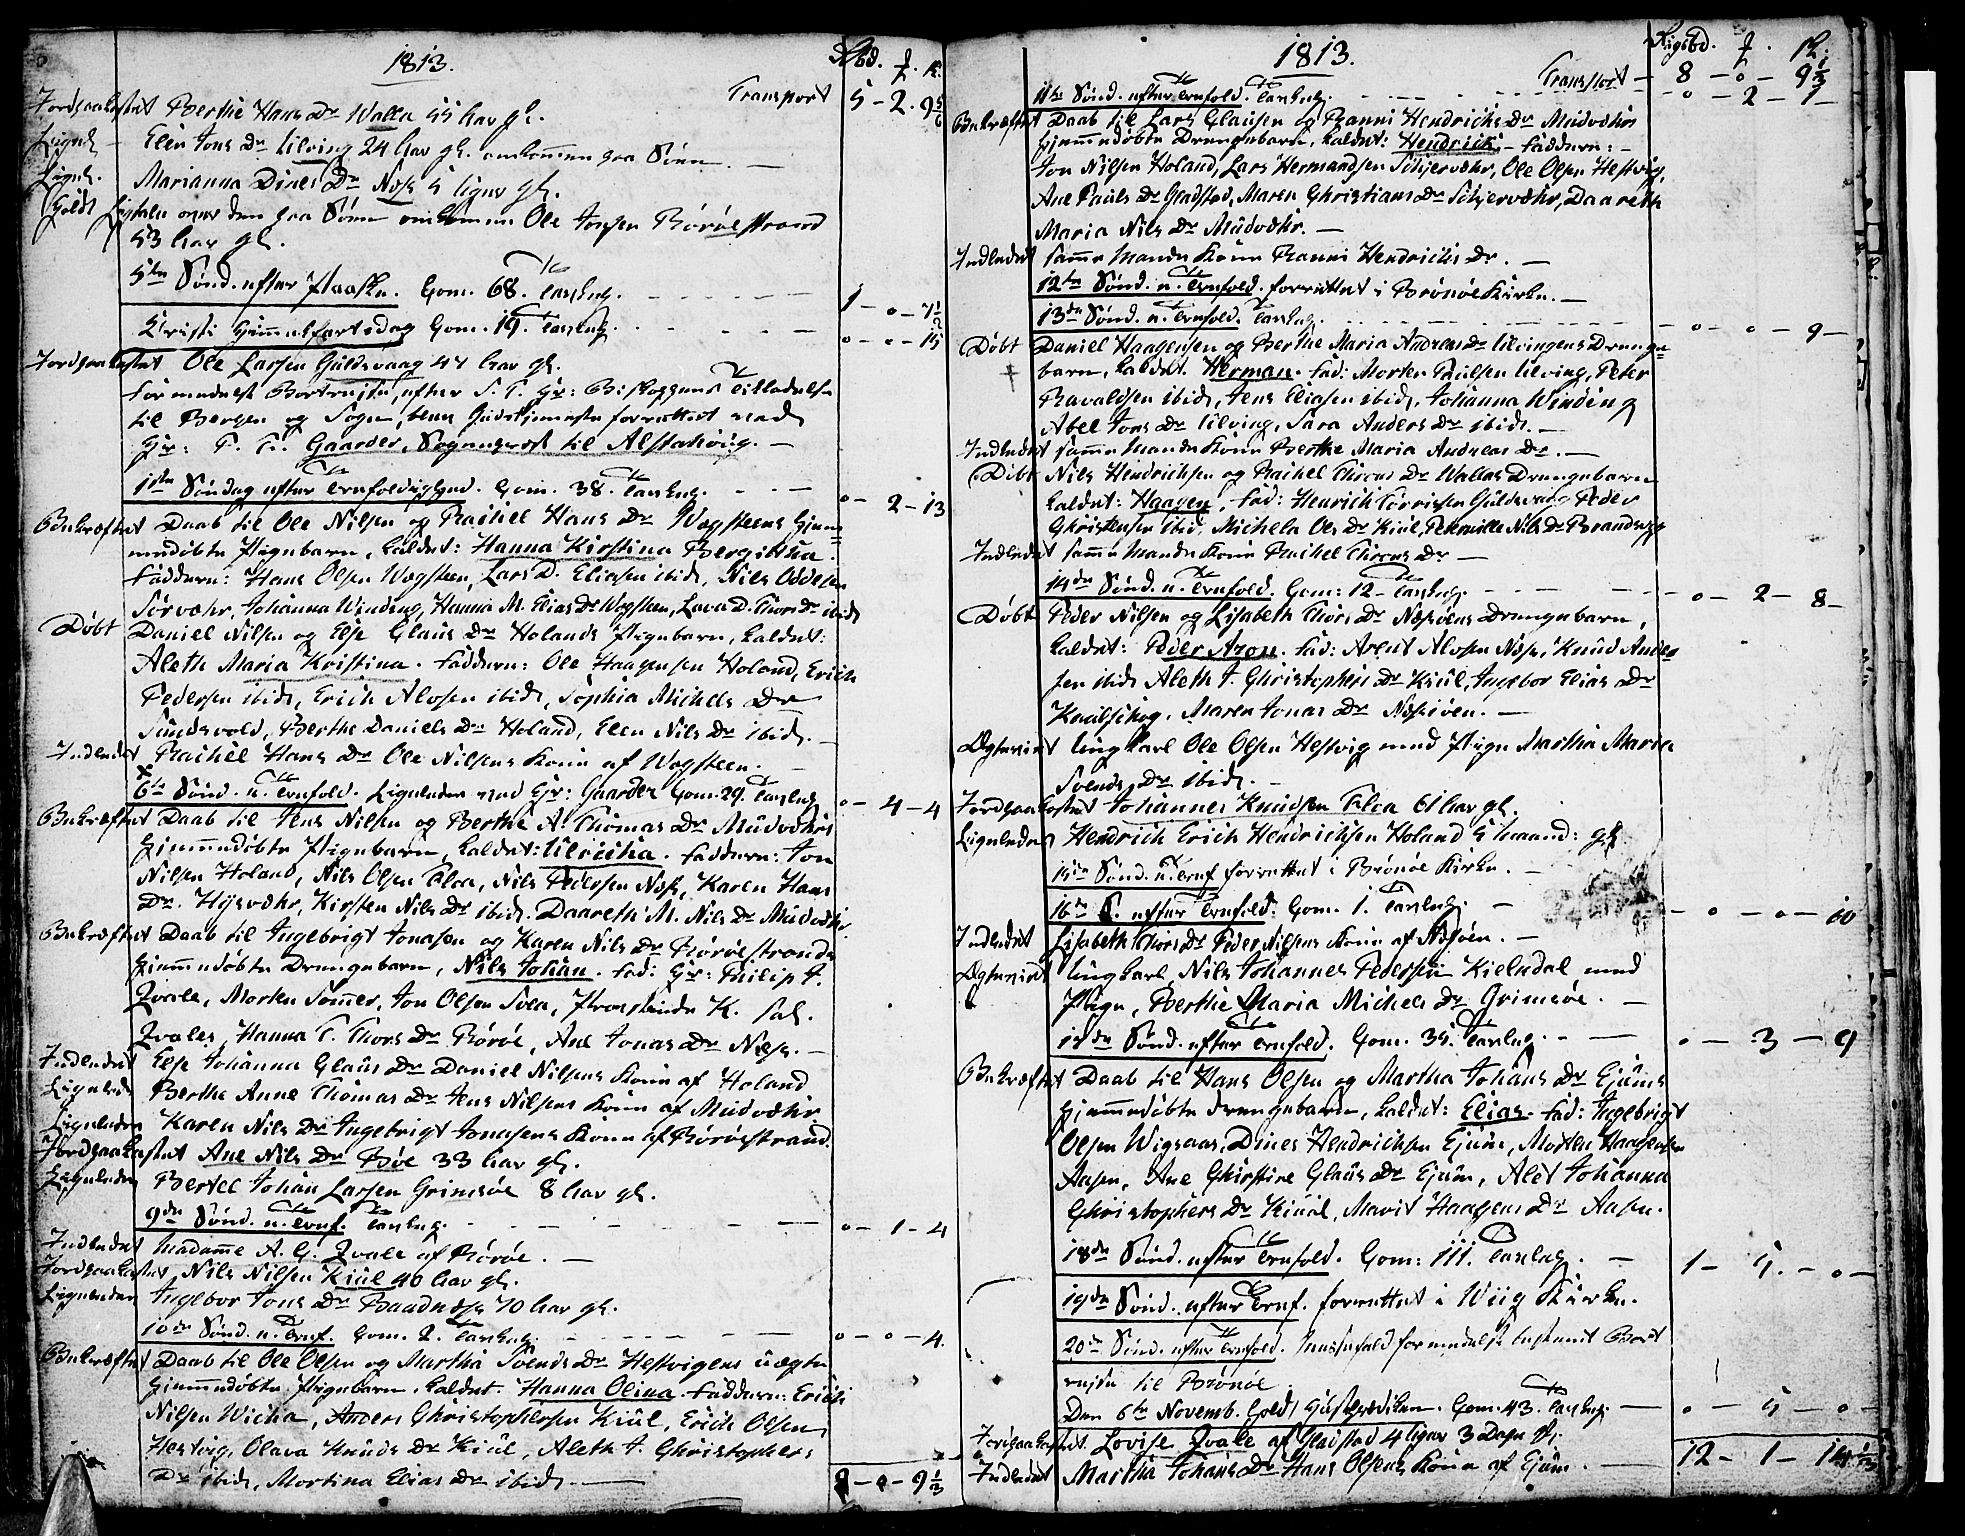 1813.
Rbd. ƒ. sk.
Transport 5 - 2 - 9
Jordpaakastet Berthe Hans Dr Walla 55 Aar gl.
Ligel. Elen Jons Dr Tilving 24 Aar gl. omkommen paa Søen
Ligel. Marianna Dines Dr Næss 5 Uger gl.
Holdt Ligtale over den paa Søen omkomne Ole Jonsen Rörøestrand
53 Aar gl.
5te Sønd. efter Paaske. Com. 68. Tavlep. 1 - 0 - 7½
Christi Himmelfartsdag Com. 19. Tavlep. 0 - 0 - 15
Jordpaakastet Ole Larsen Guldsvaag 47 Aar gl.
Formedelst Bortrejse, efter S. T. Hr: Biskoppens Tilladelse
til Bergen og Sogn, blev Gudstjenesten forrettet ved
Hr: Gaarder, Sognepræst til Alstahoug.
1ste Søndag efter Trefoldighed. Com. 38. Tavlep. 0 - 2 - 13
Bekræftet Daab til Ole Nilsen og Rachel Hans Dr Wogsteens hjem-
medøbte Pigebarn, kaldet: Hanna Kirstina Bergittha.
Faddere: Hans Olsen Wogsteen, Lars D. Eliasen ibid, Nils Oddesen
Sørvæhr, Johanna Winding, Hanna M. Elias Dr Wogsteen, Lava D. Thors Dr ibid
Døbt Daniel Nilsen og Else Claus Dr Holands Pigebarn, kaldet:
Aleth Maria Kristina. Faddere: Ole Haagensen Holand, Erich
Pedersen ibid, Erich Alvsen ibid, Sophia Michels Dr
Sundsvold, Berthe Daniels Dr Holand, Elen Nils Dr ibid.
Indledet Rachel Hans Dr Ole Nilsens Kone af Wogsteen.
6te Sønd. e. Trefold. Ligeledes ved Hr: Gaarder Com. 29. Tavlep. 0 - 4 - 4
Bekræftet Daab til Jens Nilsen og Berthe A. Thomas Dr Mudvæhrs
hjemmedøbte Pigebarn, kaldet: Ulricha. Faddere: Jon
Nilsen Holand, Nils Olsen Floa, Nils Pedersen Næss, Karen Hans
Dr. Hysvæhr, Kirsten Nils Dr ibid. Daareth M. Nils Dr Mudvæhr.
Bekræftet Daab til Ingebrigt Jonasen og Karen Nils Dr Rörøestrands
hjemmedøbte Drengebarn, Nils Johan. Fad: Hr: Philip J.
Qvale, Morten Sommer, Jon Olsen Svea, Provstinde K. sal.
Qvales, Hanna T. Thors Dr Rörøe, Ane Jonas Dr Næss.
Indledet Else Johanna Claus Dr Daniel Nilsens Kone af Holand
Ligeledes Berthe Anne Thomas Dr Jens Nilsens Kone af Mudvæhr
Ligeledes Karen Nils Dr Ingebrigt Jonasens Kone af Rörøestrand.
Jordpaakastet Ane Nils Dr Bøe 33 Aar gl.
Ligeledes Bertel Johan Larsen Grimsøe 8 Aar gl.
9de Sønd. e. Tref. Tavlep. 0 - 1 - 4
Indledet Madamme A. C. Qvale af Rörøe.
Jordpaakastet Nils Nilsen Kiül 40 Aar gl.
Ligeledes Ingebor Jons Dr Baadnæss 70 Aar gl.
10de Sønd. e. Tref. Com. 2. Tavlep. 0 - 0 - 4.
Bekræftet Daab til Ole Olsen og Martha Svends Dr Hestvigens uægte
hjemmedøbte Pigebarn, kaldet. Hanna Olina. Faddere: Erich
Nilsen Wicha, Anders Christophersen Kiül, Erich Olsen
Hestvig, Olava Knuds Dr Kiül, Aleth J. Christophers
Dr ibid, Mortina Elias Dr ibid. 8 - 0 - 9½
1813.
Rigsbd. ƒ. sk.
Transport - 8 - 0 - 9½
11te Sønd. efter Trefold. Tavlep. 0 - 2 - 1
Bekræftet Daab til Lars Clausen og Ranni Hendrichs Dr Mudvæhrs
hjemmedøbte Drengebarn, kaldet: Hendrich. Faddere:
Jon Nilsen Holand, Lars Hermandsen Schjervæhr, Ole Olsen Hestvig,
Ane Pauls Dr Gladstad, Maren Christians Dr Schjervæhr, Daareth
Maria Nils Dr Mudvæhr.
Indledet samme Mands Kone Ranni Hendrichs Dr.
12te Sønd. e. Trefold. forrettet i Brönøe Kirke.
13de Sønd. e. Trefold. Tavlep. 0 - 0 - 9
Døbt Daniel Haagensen og Berthe Maria Andreas Dr Ulvingens Drenge-
barn, kaldet. Herman. Fad: Morten Paulsen Ulving, Peter
Ravaldsen ibid, Jens Eliasen ibid, Johanna Winding
Abel Jons Dr Ulving, Sara Anders Dr ibid.
Indledet samme Mands Kone Berthe Maria Andreas Dr.
Døbt Nils Hendrichsen og Rachel Thores Dr Wallas Drengebarn
kaldet: Haagen. Fad: Henrich Torrissen Guldsvaag Peder
Christensen ibid, Michela Ols Dr Kiül, Petronille Nils Dr Brandsvig
Indledet samme Mands Kone Rachel Thores Dr
14de Sønd. e. Trefold. Com: 12 - Tavlep. 0 - 2 - 8
Døbt Peder Nilsen og Lisabeth Thors Dr Næsøens Drengebarn,
kaldet: Peder Aron. Fad: Arent Alvsen Næss, Knud Ander-
sen ibid Aleth J. Christophers Dr Kiül, Ingebor Elias Dr
Knulschog, Maren Jonas Dr Næsøen.
Ægteviet Ungkarl Ole Olsen Hestvig med Pige Martha Maria
Svends Dr ibid.
Jordpaakastet Johannes Knudsen Floa 61 Aar gl.
Ligeledes Hendrich Erich Hendrichsen Holand 5 Maand: gl.
15de Sønd. e. Tref forrettet i Brönøe Kirke.
16de S. efter Trefold. Com. 1. Tavlep. 0 - 0 - 10
Indledet Lisabeth Thors Dr Peder Nilsens Kone af Næsøen.
Ægteviet Ungkarl, Nils Johannes Pedersen Kielsdal med
Pige, Berthe Maria Michels Dr Grimsøe.
17de Sønd. efter Trefold. Com. 35. Tavlep. 0 - 3 - 9
Bekræftet Daab til Hans Olsen og Martha Johans Dr Ejums
hjemmedøbte Drengebarn, kaldet: Elias. Fad: Ingebrigt
Olsen Wigsaas, Dines Hendrichsen Ejum, Morten Haagensen
Aasen, Ane Chirstine Claus Dr Ejum, Alet Johanna
Christophers Dr Kiül, Marit Haagens Dr Aasen.
18de Sønd. efter Trefold. Com: 111. Tavlep. 1 - 5 - 0
19de Sønd. efter Tref. forrettet i Wiig Kirke.
20de Sønd. efter Trefold. Messefald formedelst bestemt Bort
rejse til Brönøe
Den 6te Novemb. holdt Høstprædiken. Com. 43. Tavlep. 0 - 5 - 0
Jordpaakastet. Lovise Qvale af Gladstad 4 Uger 3 Dage gl.
Indledet Martha Johans Dr Hans Olsens Kone af Ejum. 12 - 1 - 14½